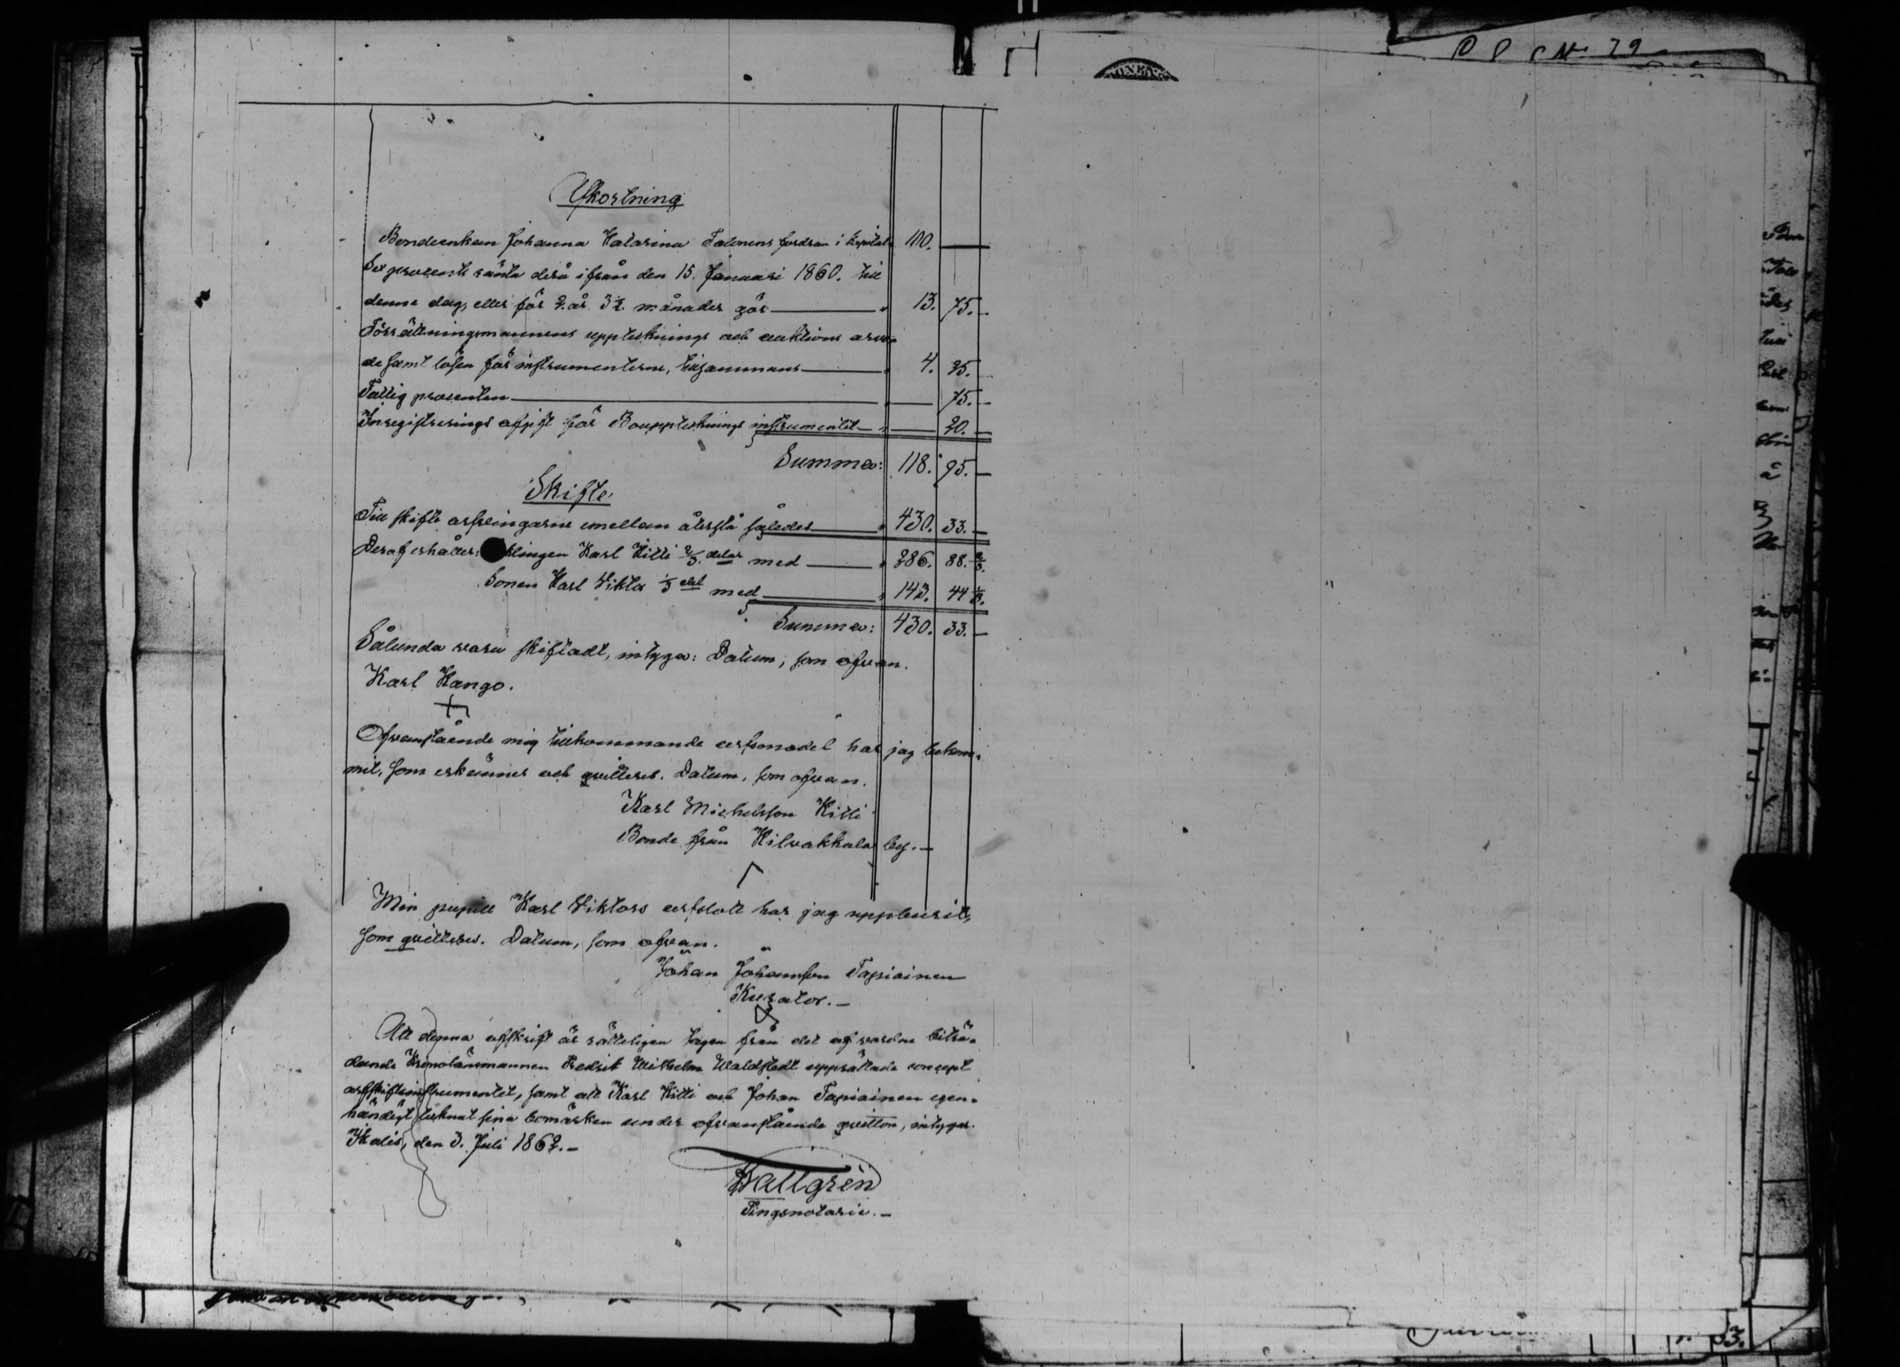 Afkortning
Bondeenkan Johanna Katarina Talonens fordran i kapital 100. —
Sex procents ränta derå ifrån den 15. Januari 1860. till
denne dag, eller för 2. år 3½. månader gör — 13. 75. —
Förrättningsmannens upptecknings och auktions arvo-
de samt lösen för instrumenterne, tillsammans — 4. 25. —
Fattig procenten — 75. —
Inregistrerings afgift för Boupptecknings instrumentet — 20. —
Summa: 118. 95. —
Skifte.
Till skifte arfvingarne emellan återstå således — 430. 33. —
Deraf erhåller: Karl Kitti 2/3. delar med — 286. 88. 2/3.
Sonen Karl Viktor 1/3 del med — 143. 44 1/3.
Summa: 430. 33. —
Sålunda vara skiftadt, intyga: Datum, som ofvan.
Karl Kango.
Ofvanstående mig tillkommande arfsandel har jag bekom-
mit, som erkännes och qvitteres. Datum, som ofvan.
Karl Michelsson Kitti
Bonde från Kilvakkala by. —
Min pupill Karl Viktors arfslott har jag uppburit,
som qvitteres. Datum, som ofvan.
Johan Johansson Tapiainen
Kurator. —
Att denna afskrift är rätteligen tagen från det af vardne biträ-
dande Kronolänsmannen Fredrik Wilhelm Waldstedt upprättade concept
arfskiftesinstrumentet, samt att Karl Kitti och Johan Tapiainen egen-
händigt tecknat sina bomärken under ofvanstående qvitton, intygar.
Ikalis, den 3. Juli 1862. —
Wallgrén
Tingsnotarie. —